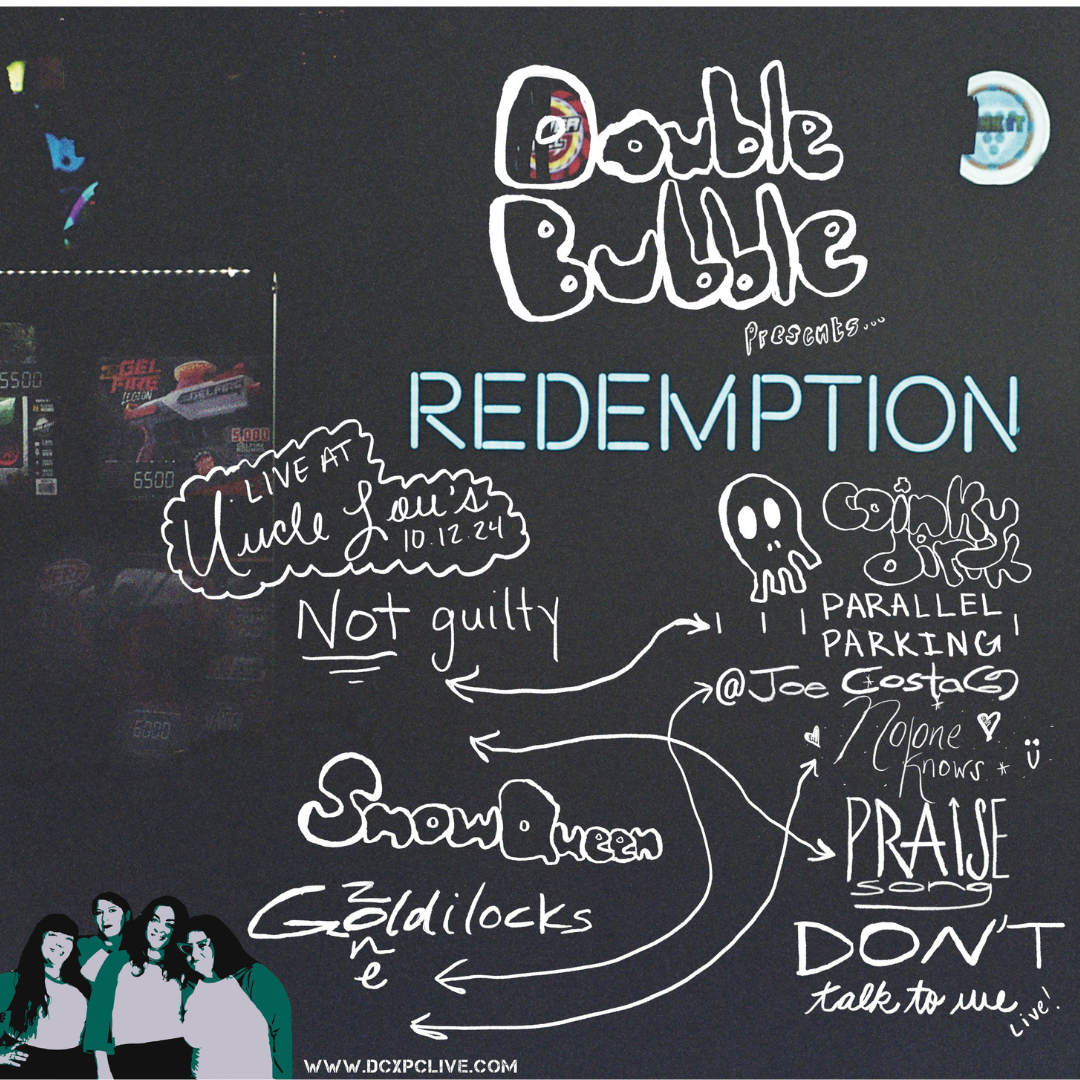 Double
Bubble
Presents...
REDEMPTION
LIVE AT
Uncle Lou's
10.12.24
Not guilty
Coinky
dink
PARALLEL
PARKING
@Joe Costa(s)
No1one
Knows
PRAISE
song
DON'T
talk to me
Live!
SnowQueen
Goldilocks
Zone
GEL
FIRE
LEGION
GELFIRE
5500
5,000
6500
6000
WWW.DCXPCLIVE.COM